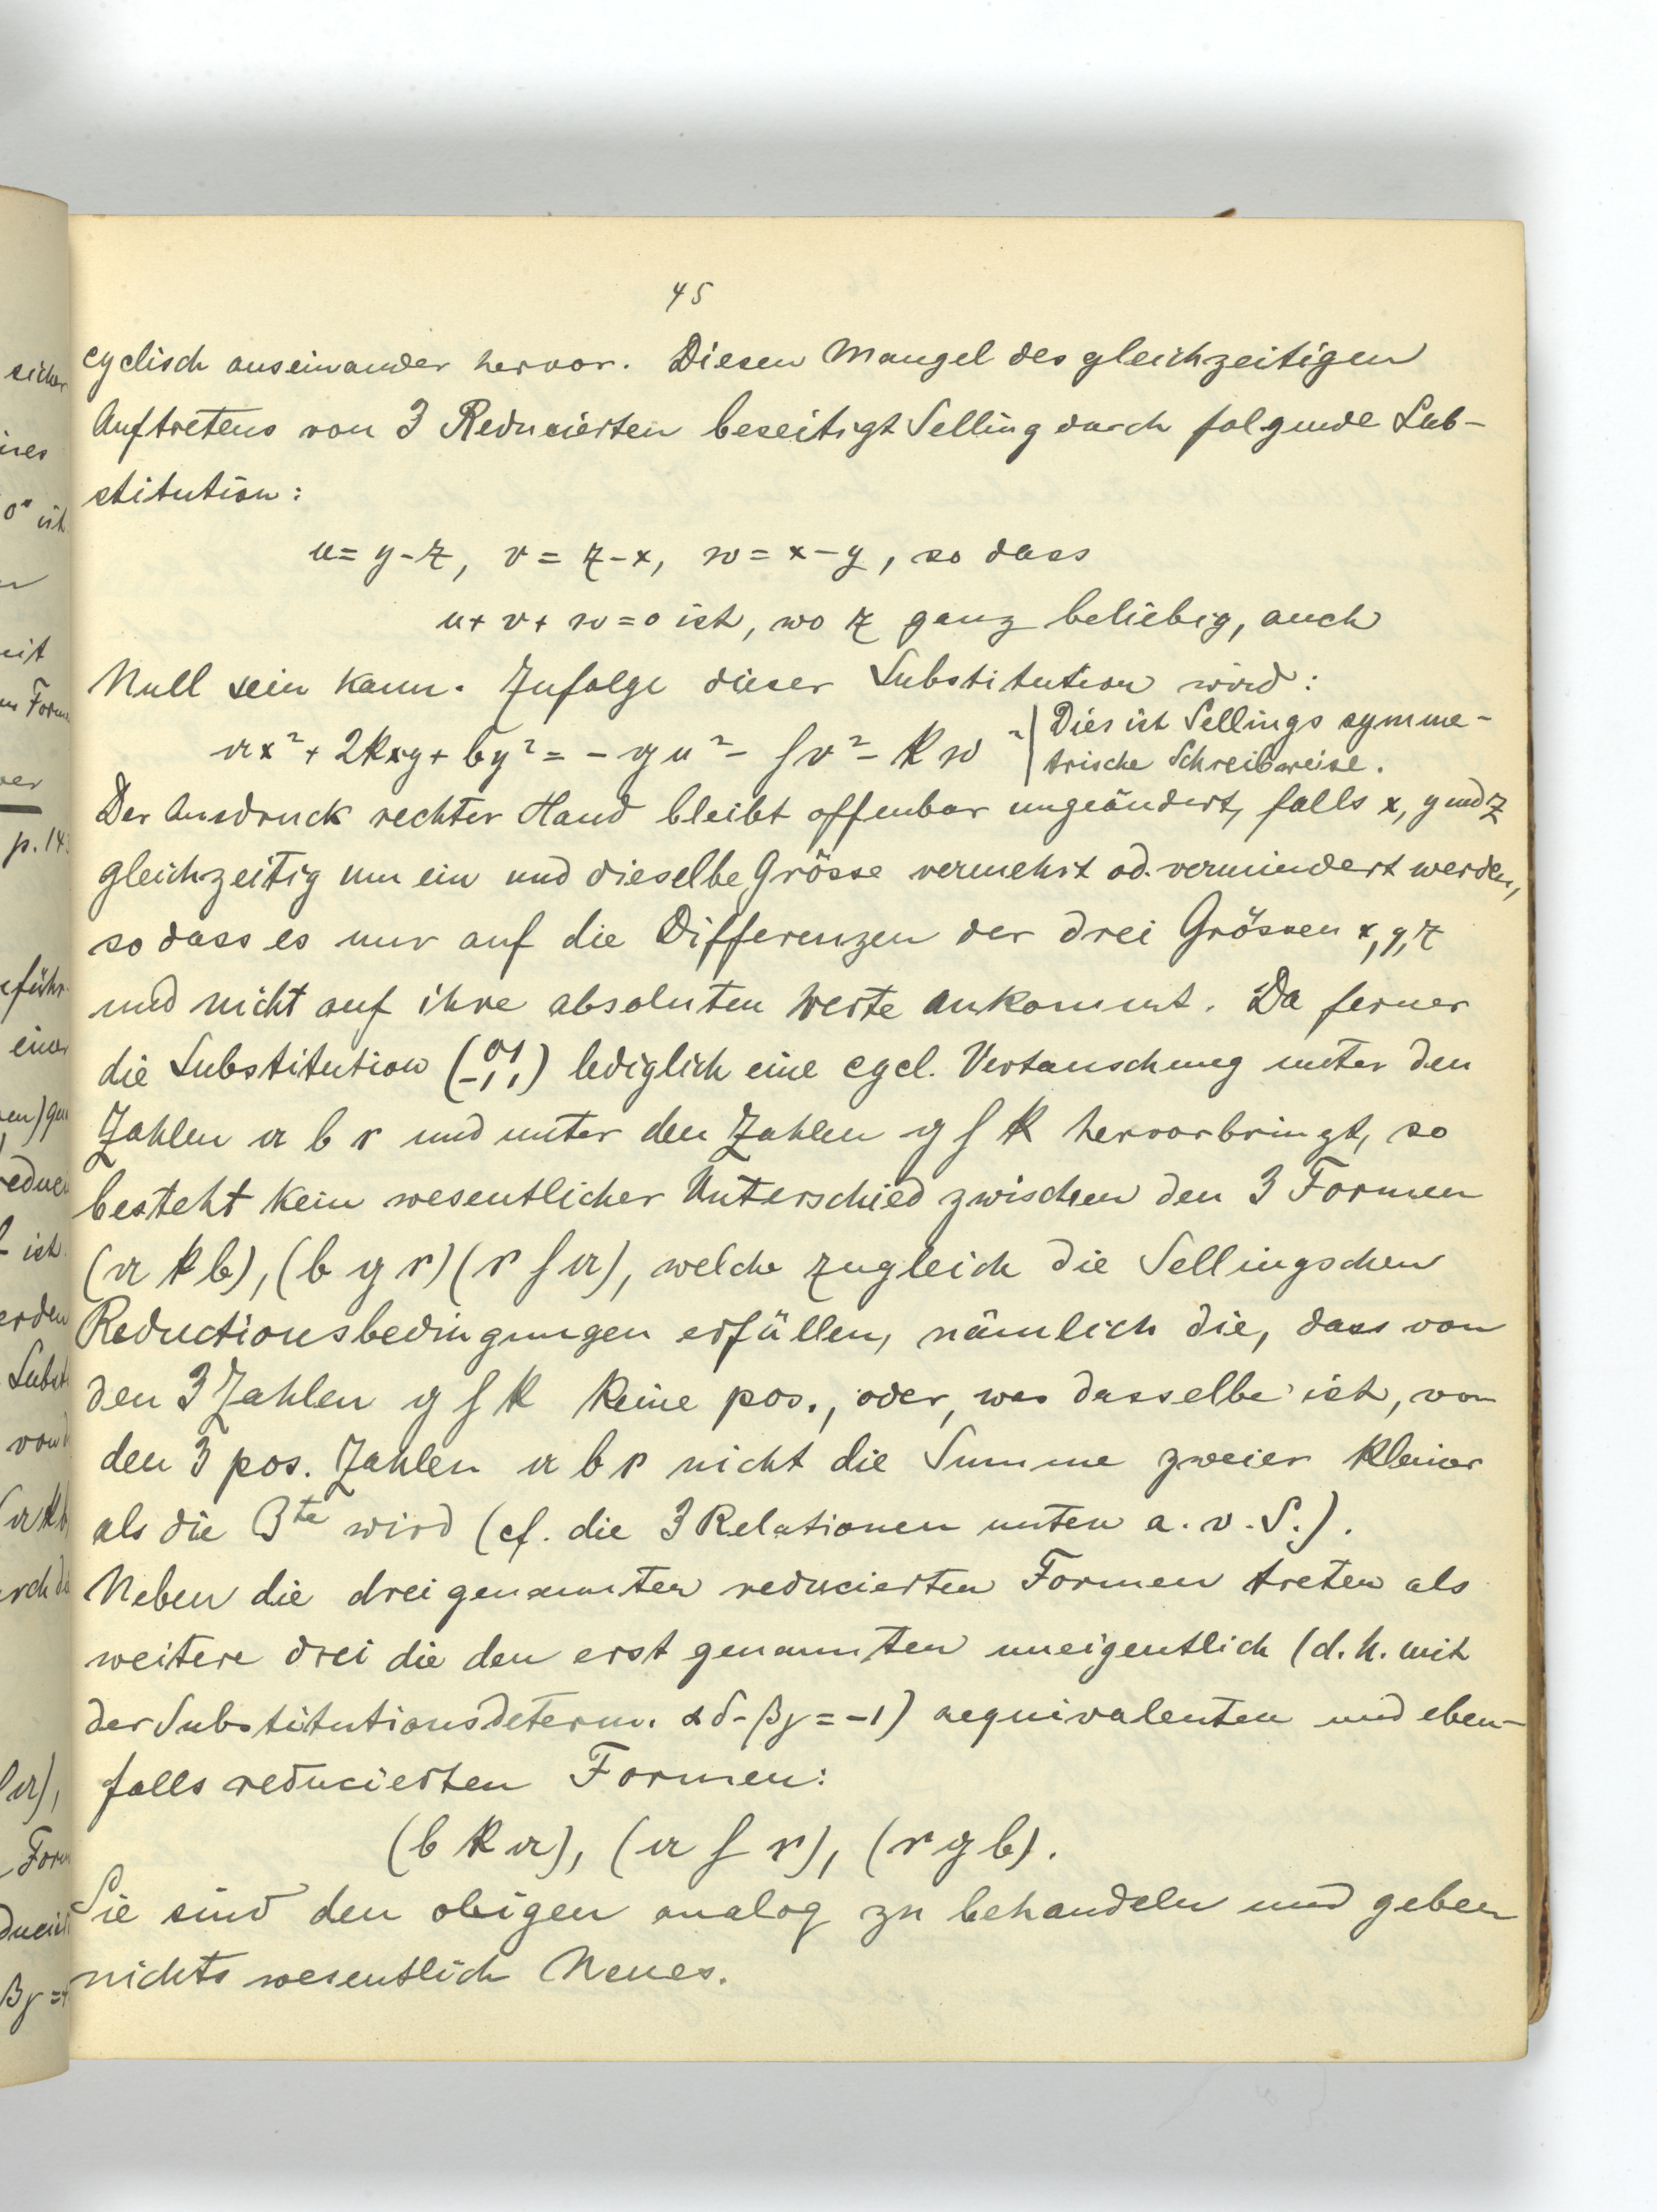 45
cyclisch auseinander hervor. Diesen Mangel des gleichzeitigen
Auftretens von 3 Reducierten beseitigt Selling durch folgende Sub-
stitution:
u = y - z, v = z - x, w = x - y, so dass
u + v + w = 0 ist, wo z ganz beliebig, auch
Null sein kann. Zufolge dieser Substitution wird:
𝔞x² + 2𝔨xy + 𝔟y² = - 𝔤u² - 𝔥v² - 𝔨w² | Dies ist Sellings symme-
trische Schreibweise.
Der Ausdruck rechter Hand bleibt offenbar ungeändert, falls x, y und z
gleichzeitig um ein und dieselbe Grösse vermehrt od. vermindert werden,
so dass es nur auf die Differenzen der drei Grössen x, y, z
und nicht auf ihre absoluten Werte ankommt. Da ferner
die Substitution (0 1 / -1, 1) lediglich eine cycl. Vertauschung unter den
Zahlen 𝔞 𝔟 𝔠 und unter den Zahlen 𝔤 𝔥 𝔨 hervorbringt, so
besteht kein wesentlicher Unterschied zwischen den 3 Formen
(𝔞 𝔨 𝔟), (𝔟 𝔤 𝔠) (𝔠 𝔥 𝔞), welche zugleich die Sellingschen
Reductionsbedingungen erfüllen, nämlich die, dass von
den 3 Zahlen 𝔤 𝔥 𝔨 keine pos., oder, was dasselbe ist, von
den 3 pos. Zahlen 𝔞 𝔟 𝔠 nicht die Summe zweier kleiner
als die 3te wird (cf. die 3 Relationen unten a. v. S.).
Neben die drei genannten reducierten Formen treten als
weitere drei die den erst genannten uneigentlich (d. h. mit
der Substitutionsdeterm. αδ - βγ = -1) aequivalenten und eben-
falls reducierten Formen:
(𝔟 𝔨 𝔞), (𝔞 𝔥 𝔠), (𝔠 𝔤 𝔟).
Sie sind den obigen analog zu behandeln und geben
nichts wesentlich Neues.